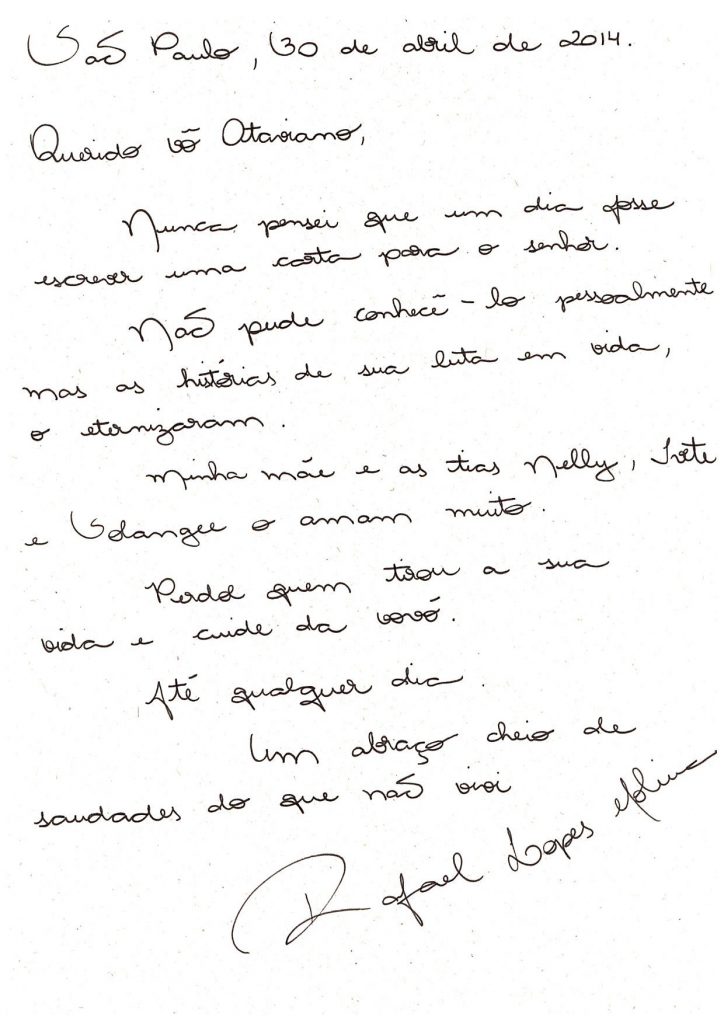 São Paulo, 30 de abril de 2014.
Querido vô Otaviano,
Nunca pensei que um dia fosse
escrever uma carta para o senhor.
Não pude conhecê-lo pessoalmente
mas as histórias de sua luta em vida,
o eternizaram.
Minha mãe e as tias Nelly, Ivete
e Solange o amam muito.
Perdoe quem tirou a sua
vida e cuide da vovó.
Até qualquer dia.
Um abraço cheio de
saudades do que não vivi
Rafael Lopes Molina